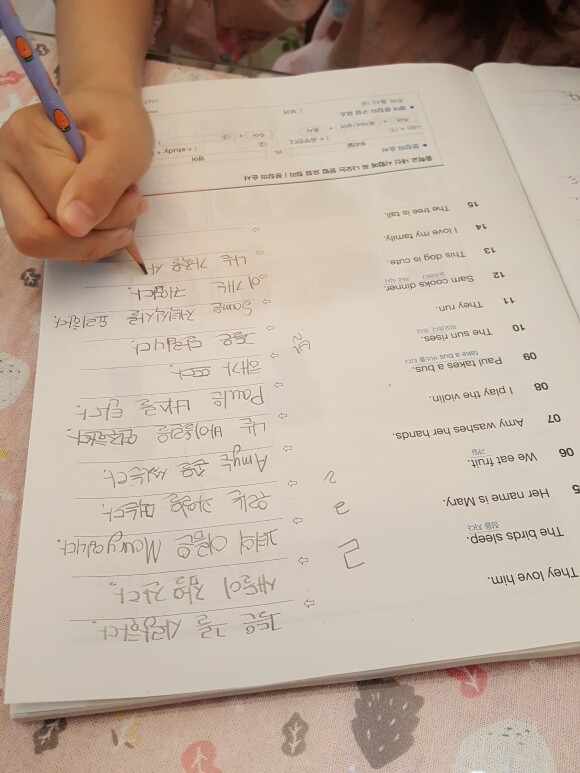 They love him.
⇨ 그들은 그를 사랑한다.
The birds sleep.
잠을 자다
⇨ 새들이 잠을 잔다.
5 Her name is Mary.
⇨ 그녀의 이름은 Mary입니다.
06 We eat fruit.
과일
⇨ 우리는 과일을 먹는다.
07 Amy washes her hands.
⇨ Amy는 손을 씻는다.
08 I play the violin.
⇨ 나는 바이올린을 연주한다.
09 Paul takes a bus.
take a bus 버스를 타다
⇨ Paul은 버스를 탄다.
10 The sun rises.
⇨ 해가
11 They run.
⇨ 그들은 달린다.
12 Sam cooks dinner.
⇨ Same 저녁식사를 요리한다.
13 This dog is cute.
⇨ 이 개는 귀엽다.
14 I love my family.
⇨ 나는 가족을 사
15 The tree is tall.
⇨
중학교 내신 시험에 꼭 나오는 문법 요점 정리 | 문장의 순서
● 문장의 순서
우리말 vs. 영어
● 영어 문장의 구성 요소